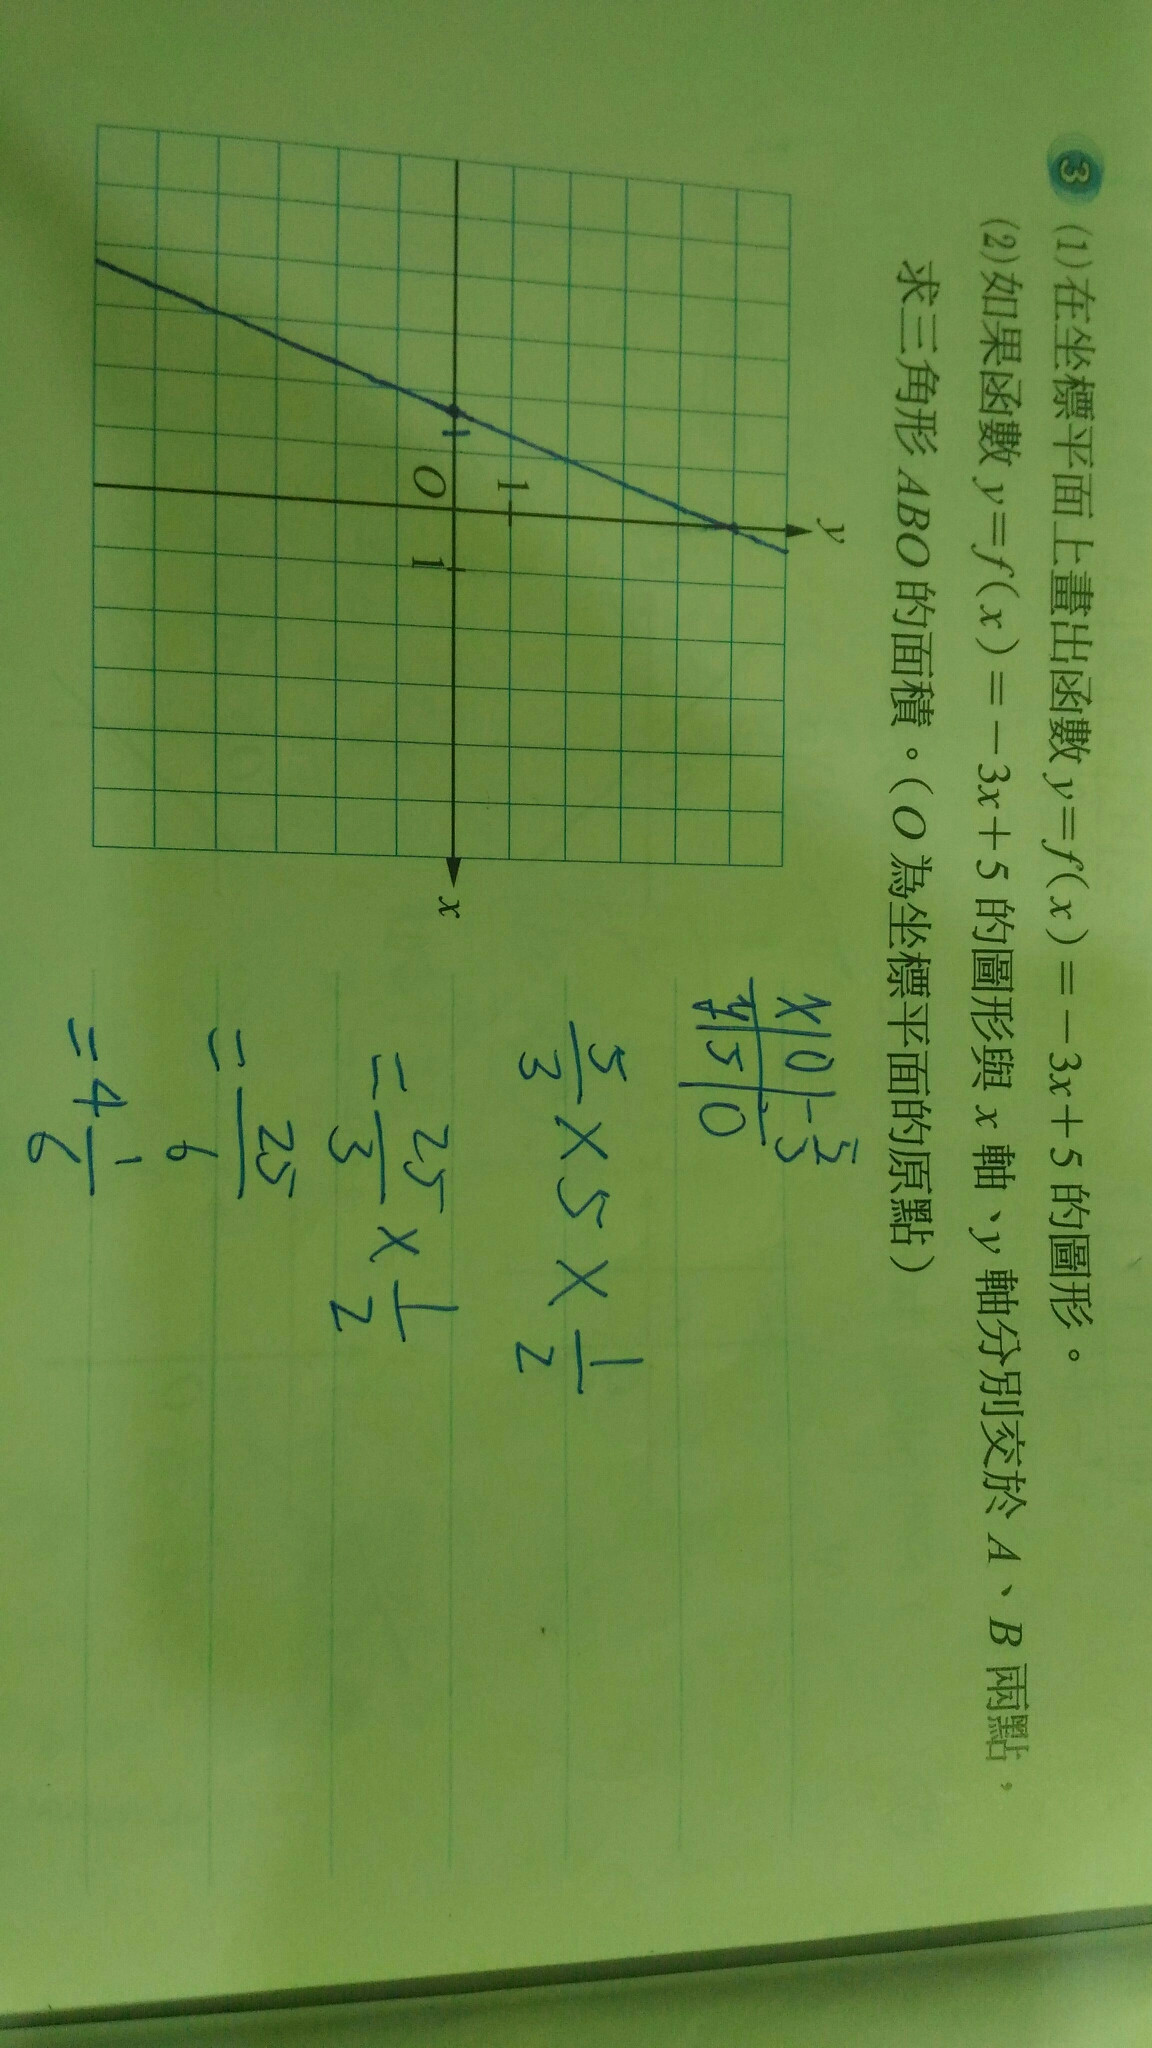 3 (1)在坐標平面上畫出函數y=f(x)=-3x+5的圖形。
(2)如果函數y=f(x)=-3x+5的圖形與x軸、y軸分別交於A、B兩點，
求三角形ABO的面積。(O為坐標平面的原點)
y
1
O
1
x
x | 0 | -5/3
y | 5 | 0
5/3 × 5 × 1/2
= 25/3 × 1/2
= 25/6
= 4 1/6